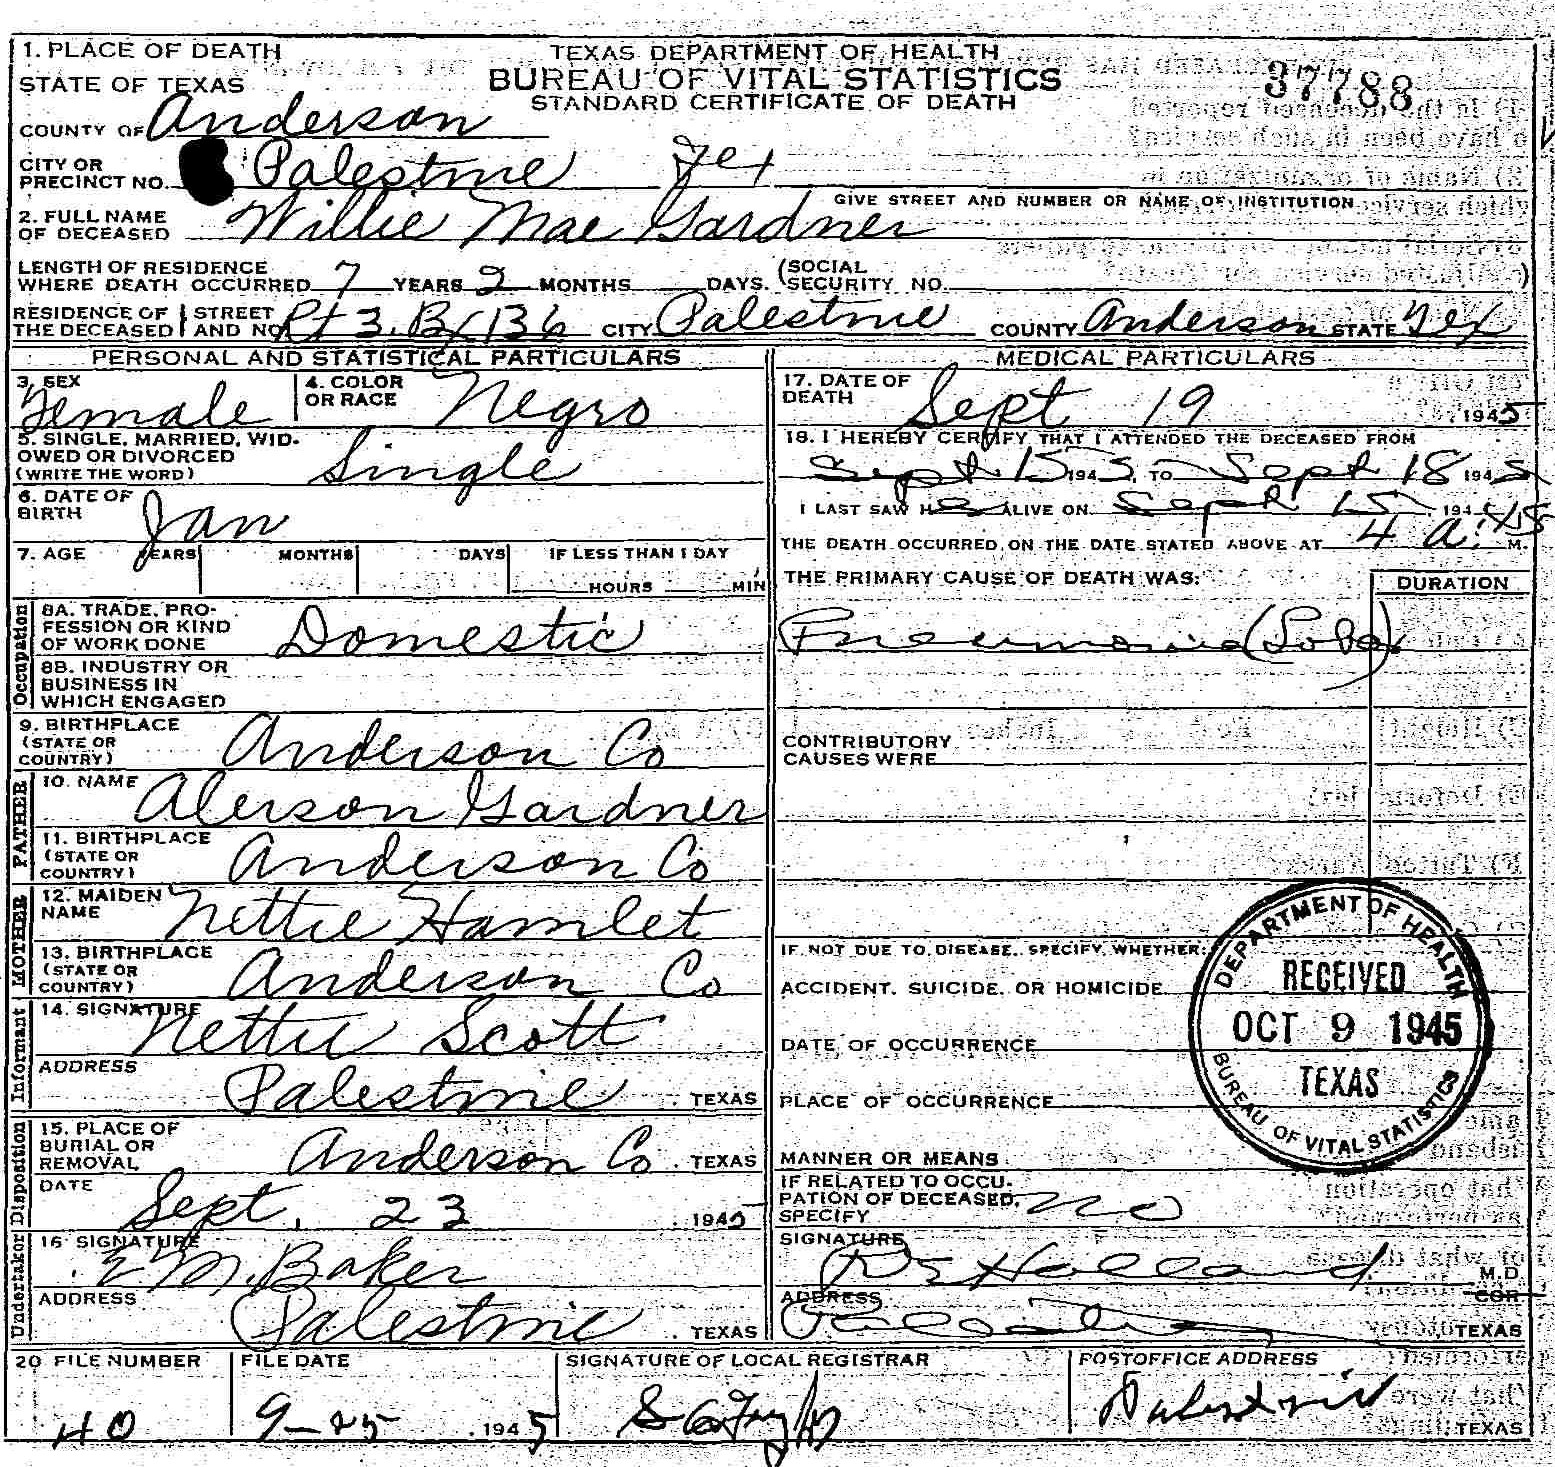 1. PLACE OF DEATH
STATE OF TEXAS
TEXAS DEPARTMENT OF HEALTH
BUREAU OF VITAL STATISTICS
STANDARD CERTIFICATE OF DEATH
37788
COUNTY OF Anderson
CITY OR PRECINCT NO. Palestine Tex
GIVE STREET AND NUMBER OR NAME OF INSTITUTION
2. FULL NAME OF DECEASED Willie Mae Gardner
LENGTH OF RESIDENCE WHERE DEATH OCCURRED 7 YEARS 2 MONTHS DAYS. (SOCIAL SECURITY NO. )
RESIDENCE OF THE DECEASED STREET AND NO. Rt 3. Bx 136 CITY Palestine COUNTY Anderson STATE Tex
PERSONAL AND STATISTICAL PARTICULARS
3. SEX Female
4. COLOR OR RACE Negro
5. SINGLE, MARRIED, WIDOWED OR DIVORCED (WRITE THE WORD) Single
6. DATE OF BIRTH Jan
7. AGE YEARS MONTHS DAYS IF LESS THAN 1 DAY
HOURS MIN
Occupation
8A. TRADE, PROFESSION OR KIND OF WORK DONE Domestic
8B. INDUSTRY OR BUSINESS IN WHICH ENGAGED
9. BIRTHPLACE (STATE OR COUNTRY) Anderson Co
FATHER
10. NAME Alerson Gardner
11. BIRTHPLACE (STATE OR COUNTRY) Anderson Co
MOTHER
12. MAIDEN NAME Nettie Hamlet
13. BIRTHPLACE (STATE OR COUNTRY) Anderson Co
Informant
14. SIGNATURE Nettie Scott
ADDRESS Palestine TEXAS
Disposition
15. PLACE OF BURIAL OR REMOVAL Anderson Co. TEXAS
DATE Sept. 23 1945
Undertaker
16 SIGNATURE E M. Baker
ADDRESS Palestine TEXAS
MEDICAL PARTICULARS
17. DATE OF DEATH Sept 19 1945
18. I HEREBY CERTIFY THAT I ATTENDED THE DECEASED FROM
Sept 15 1945 TO Sept 18 1945
I LAST SAW H ALIVE ON Sept 15 194
THE DEATH OCCURRED ON THE DATE STATED ABOVE AT 4 a. M.
THE PRIMARY CAUSE OF DEATH WAS:
DURATION
Pneumonia (Lobar)
CONTRIBUTORY CAUSES WERE
IF NOT DUE TO DISEASE, SPECIFY WHETHER:
ACCIDENT, SUICIDE, OR HOMICIDE
DATE OF OCCURRENCE
PLACE OF OCCURRENCE
MANNER OR MEANS
DEPARTMENT OF HEALTH
RECEIVED
OCT 9 1945
TEXAS
BUREAU OF VITAL STATISTICS
IF RELATED TO OCCUPATION OF DECEASED, SPECIFY no
SIGNATURE Holland M.D.
COR
ADDRESS Palestine TEXAS
20 FILE NUMBER 40
FILE DATE 9-25 1945
SIGNATURE OF LOCAL REGISTRAR
POSTOFFICE ADDRESS Palestine TEXAS